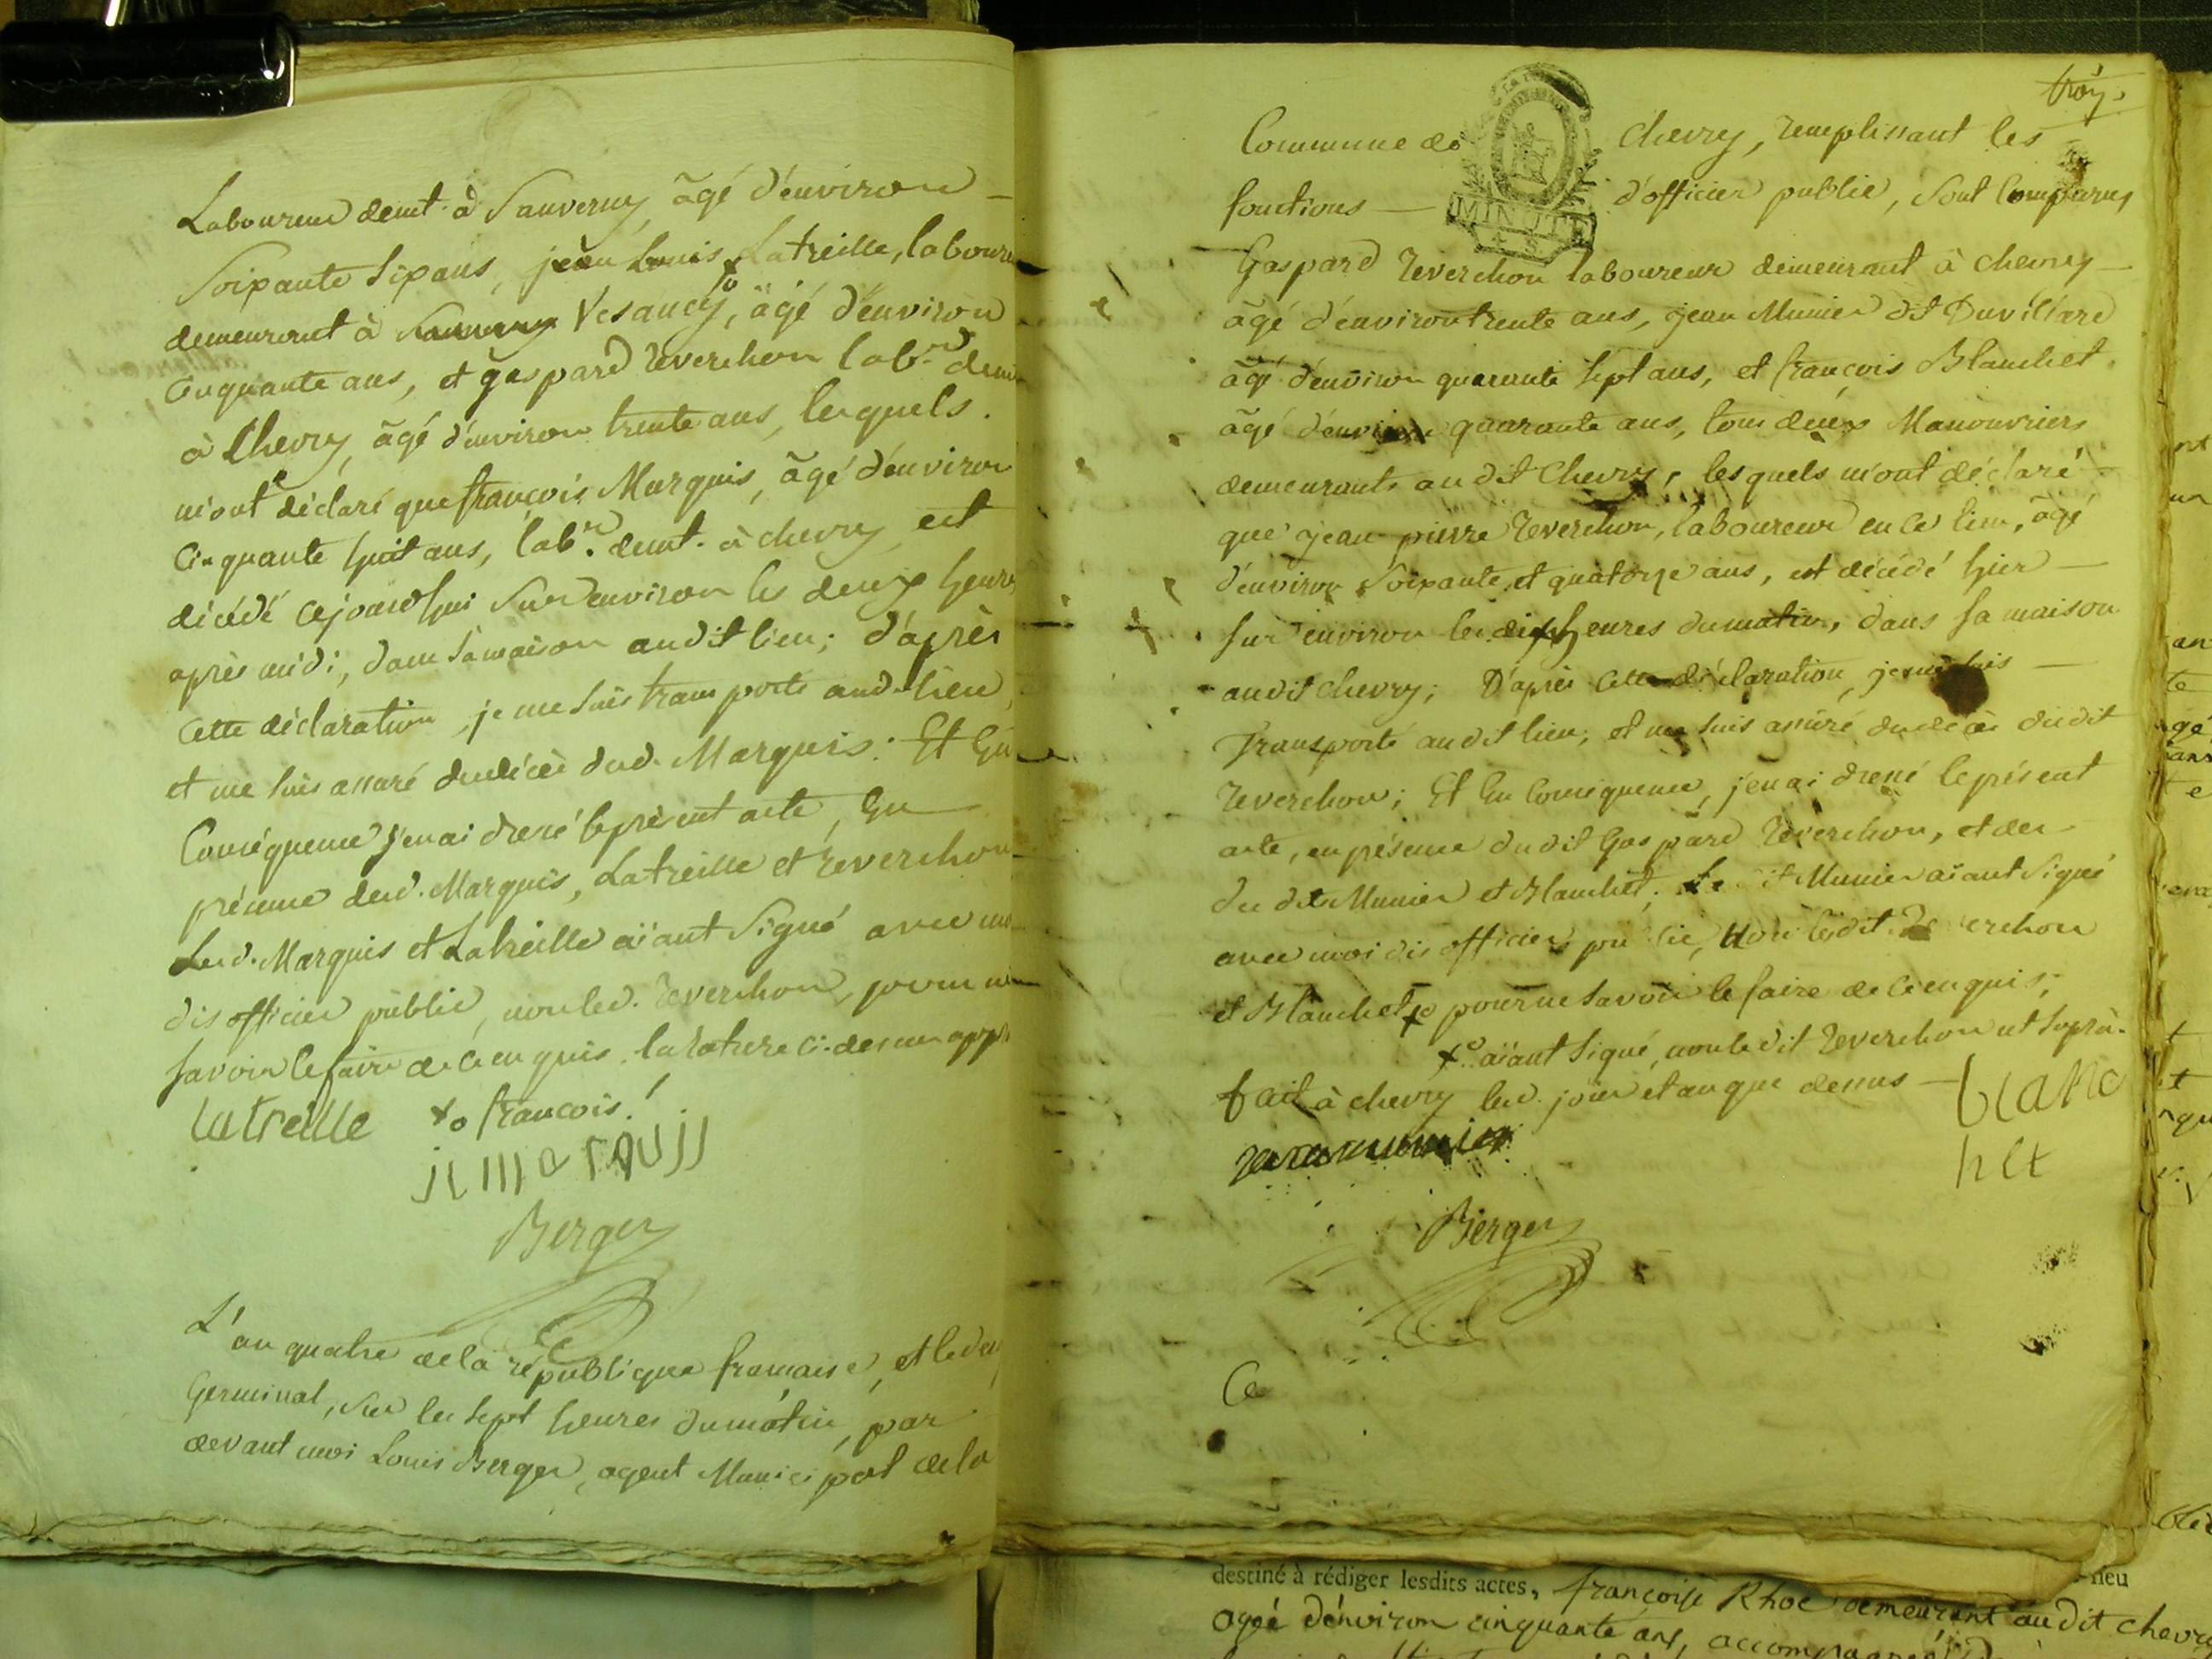 Laboureur demt. à Sauverny âgé d'environ
Soixante six ans, jean Louis x Latreille, laboure
demeurant à Vesancy, âgé d'environ
Cinquante ans, et gaspard Reverchon lab.r dem
à Chevry, âgé d'environ trente ans, lesquels
m'ont déclaré que françois Marquis, âgé d'environ
Cinquante huit ans, lab.r demt. à chevry est
décédé cejourd'hui Sur environ les deux heures
après midi, dans sa maison audit lieu; d'après
Cette déclaration, je me suis transporté aud. lieu,
et me suis assuré du décès dud. Marquis. Et En
Conséquence j'en ai dressé le présent acte, En
présence desd. Marquis, Latreille et Reverchon
Lesd. Marquis et Latreille aïant Signé avec moi
dis officier public, non led. Reverchon, pour ne
Savoir le faire de ce enquis. la rature ci-dessus appr
latreille xo francois.
Berger
L'an quatre de la république française, et le dix
Germinal, Sur les sept heures du matin, par
devant moi Louis Berger, agent Municipal de la
troy.
Commune de Chevry, remplissant les
fonctions — d'officier public, Sont Comparus
MINUTE
Gaspard Reverchon laboureur demeurant à chevry
âgé d'environ trente ans, jean Munier dt Duvillard
âgé d'environ quarante sept ans, et françois Blanchet
âgé d'environ quarante ans, tous deux Manouvriers
demeurants audit Chevry, lesquels m'ont déclaré
que jean pierre Reverchon, laboureur en ce lieu, âgé
d'environ Soixante et quatorze ans, est décédé hier
Sur environ les dix heures du matin, dans sa maison
audit chevry; D'après Cette déclaration, je me suis
Transporté audit lieu, et me suis assuré du décès dudit
Reverchon; Et En Conséquence, j'en ai dressé le présent
acte, en présence dudit Gaspard Reverchon, et des
dits Munier et Blanchet. Munier aïant Signé
avec moi dis officier public, ledit Reverchon
et Blanchet xo pour ne Savoir le faire de ce enquis;
xo. aïant Signé, non ledit Reverchon
fait à chevry lesd. jour et an que dessus
blanc
het
Berger
Ce
destiné à rédiger lesdits actes, françoise Rhoé demeurant audit chevry
agée d'environ cinquante ans,